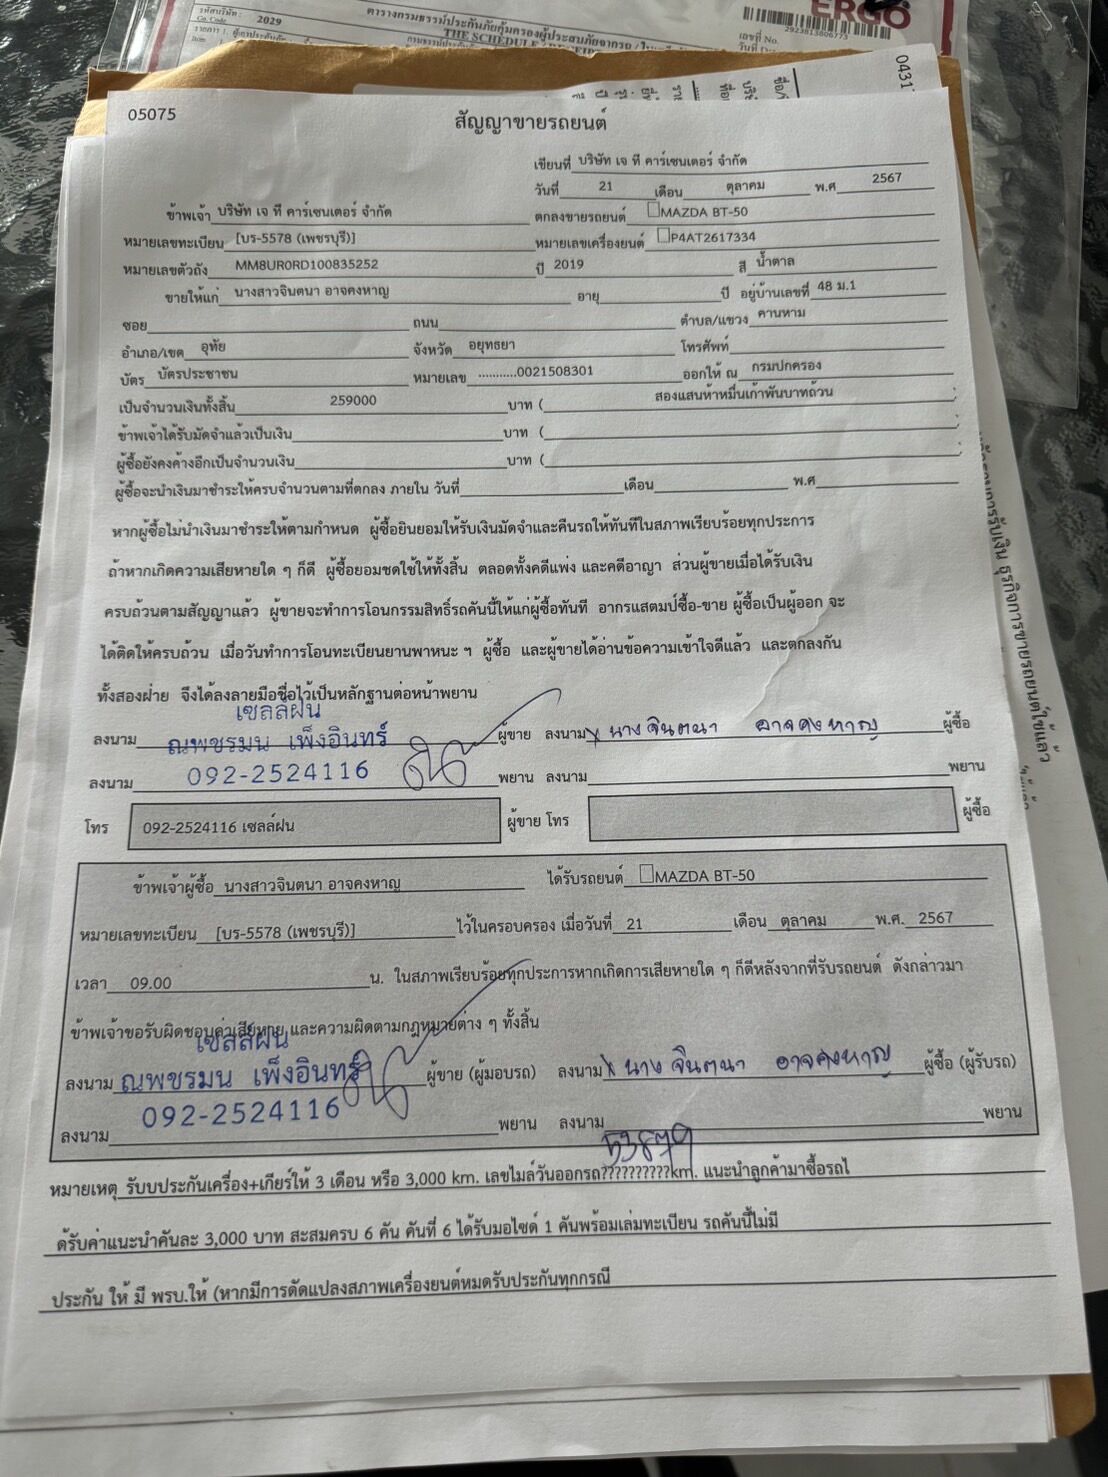 รหัสบริษัท :
Co. Code 2029
ตารางกรมธรรม์ประกันภัยคุ้มครองผู้ประสบภัยจากรถ
THE SCHEDULE
ERGO
เลขที่ No.
0431
05075
สัญญาขายรถยนต์
เขียนที่ บริษัท เจ ที คาร์เซนเตอร์ จำกัด
วันที่ 21 เดือน ตุลาคม พ.ศ 2567
ข้าพเจ้า บริษัท เจ ที คาร์เซนเตอร์ จำกัด ตกลงขายรถยนต์ MAZDA BT-50
หมายเลขทะเบียน [บร-5578 (เพชรบุรี)] หมายเลขเครื่องยนต์ P4AT2617334
หมายเลขตัวถัง MM8UR0RD100835252 ปี 2019 สี น้ำตาล
ขายให้แก่ นางสาวจินตนา อาจคงหาญ อายุ ปี อยู่บ้านเลขที่ 48 ม.1
ซอย ถนน ตำบล/แขวง คานหาม
อำเภอ/เขต อุทัย จังหวัด อยุทธยา โทรศัพท์
บัตร บัตรประชาชน หมายเลข ...........0021508301 ออกให้ ณ กรมปกครอง
เป็นจำนวนเงินทั้งสิ้น 259000 บาท ( สองแสนห้าหมื่นเก้าพันบาทถ้วน
ข้าพเจ้าได้รับมัดจำแล้วเป็นเงิน บาท (
ผู้ซื้อยังคงค้างอีกเป็นจำนวนเงิน บาท (
ผู้ซื้อจะนำเงินมาชำระให้ครบจำนวนตามที่ตกลง ภายใน วันที่ เดือน พ.ศ
หากผู้ซื้อไม่นำเงินมาชำระให้ตามกำหนด ผู้ซื้อยินยอมให้รับเงินมัดจำและคืนรถให้ทันทีในสภาพเรียบร้อยทุกประการ
ถ้าหากเกิดความเสียหายใด ๆ ก็ดี ผู้ซื้อยอมชดใช้ให้ทั้งสิ้น ตลอดทั้งคดีแพ่ง และคดีอาญา ส่วนผู้ขายเมื่อได้รับเงิน
ครบถ้วนตามสัญญาแล้ว ผู้ขายจะทำการโอนกรรมสิทธิ์รถคันนี้ให้แก่ผู้ซื้อทันที อากรแสตมป์ซื้อ-ขาย ผู้ซื้อเป็นผู้ออก จะ
ได้ติดให้ครบถ้วน เมื่อวันทำการโอนทะเบียนยานพาหนะ ฯ ผู้ซื้อ และผู้ขายได้อ่านข้อความเข้าใจดีแล้ว และตกลงกัน
ทั้งสองฝ่าย จึงได้ลงลายมือชื่อไว้เป็นหลักฐานต่อหน้าพยาน
เซลล์ฝน
ลงนาม ณพชรมน เพ็งอินทร์ ผู้ขาย ลงนาม x นางจินตนา อาจคงหาญ ผู้ซื้อ
ลงนาม 092-2524116 พยาน ลงนาม พยาน
โทร 092-2524116 เซลล์ฝน ผู้ขาย โทร ผู้ซื้อ
ข้าพเจ้าผู้ซื้อ นางสาวจินตนา อาจคงหาญ ได้รับรถยนต์ MAZDA BT-50
หมายเลขทะเบียน [บร-5578 (เพชรบุรี)] ไว้ในครอบครอง เมื่อวันที่ 21 เดือน ตุลาคม พ.ศ. 2567
เวลา 09.00 น. ในสภาพเรียบร้อยทุกประการหากเกิดการเสียหายใด ๆ ก็ดีหลังจากที่รับรถยนต์ ดังกล่าวมา
ข้าพเจ้าขอรับผิดชอบค่าเสียหาย และความผิดตามกฎหมายต่าง ๆ ทั้งสิ้น
เซลล์ฝน
ลงนาม ณพชรมน เพ็งอินทร์ ผู้ขาย (ผู้มอบรถ) ลงนาม x นางจินตนา อาจคงหาญ ผู้ซื้อ (ผู้รับรถ)
092-2524116
ลงนาม พยาน ลงนาม พยาน
53879
หมายเหตุ รับบประกันเครื่อง+เกียร์ให้ 3 เดือน หรือ 3,000 km. เลขไมล์วันออกรถ??????????km. แนะนำลูกค้ามาซื้อรถไ
ด้รับค่าแนะนำคันละ 3,000 บาท สะสมครบ 6 คัน คันที่ 6 ได้รับมอไซด์ 1 คันพร้อมเล่มทะเบียน รถคันนี้ไม่มี
ประกัน ให้ มี พรบ.ให้ (หากมีการดัดแปลงสภาพเครื่องยนต์หมดรับประกันทุกกรณี